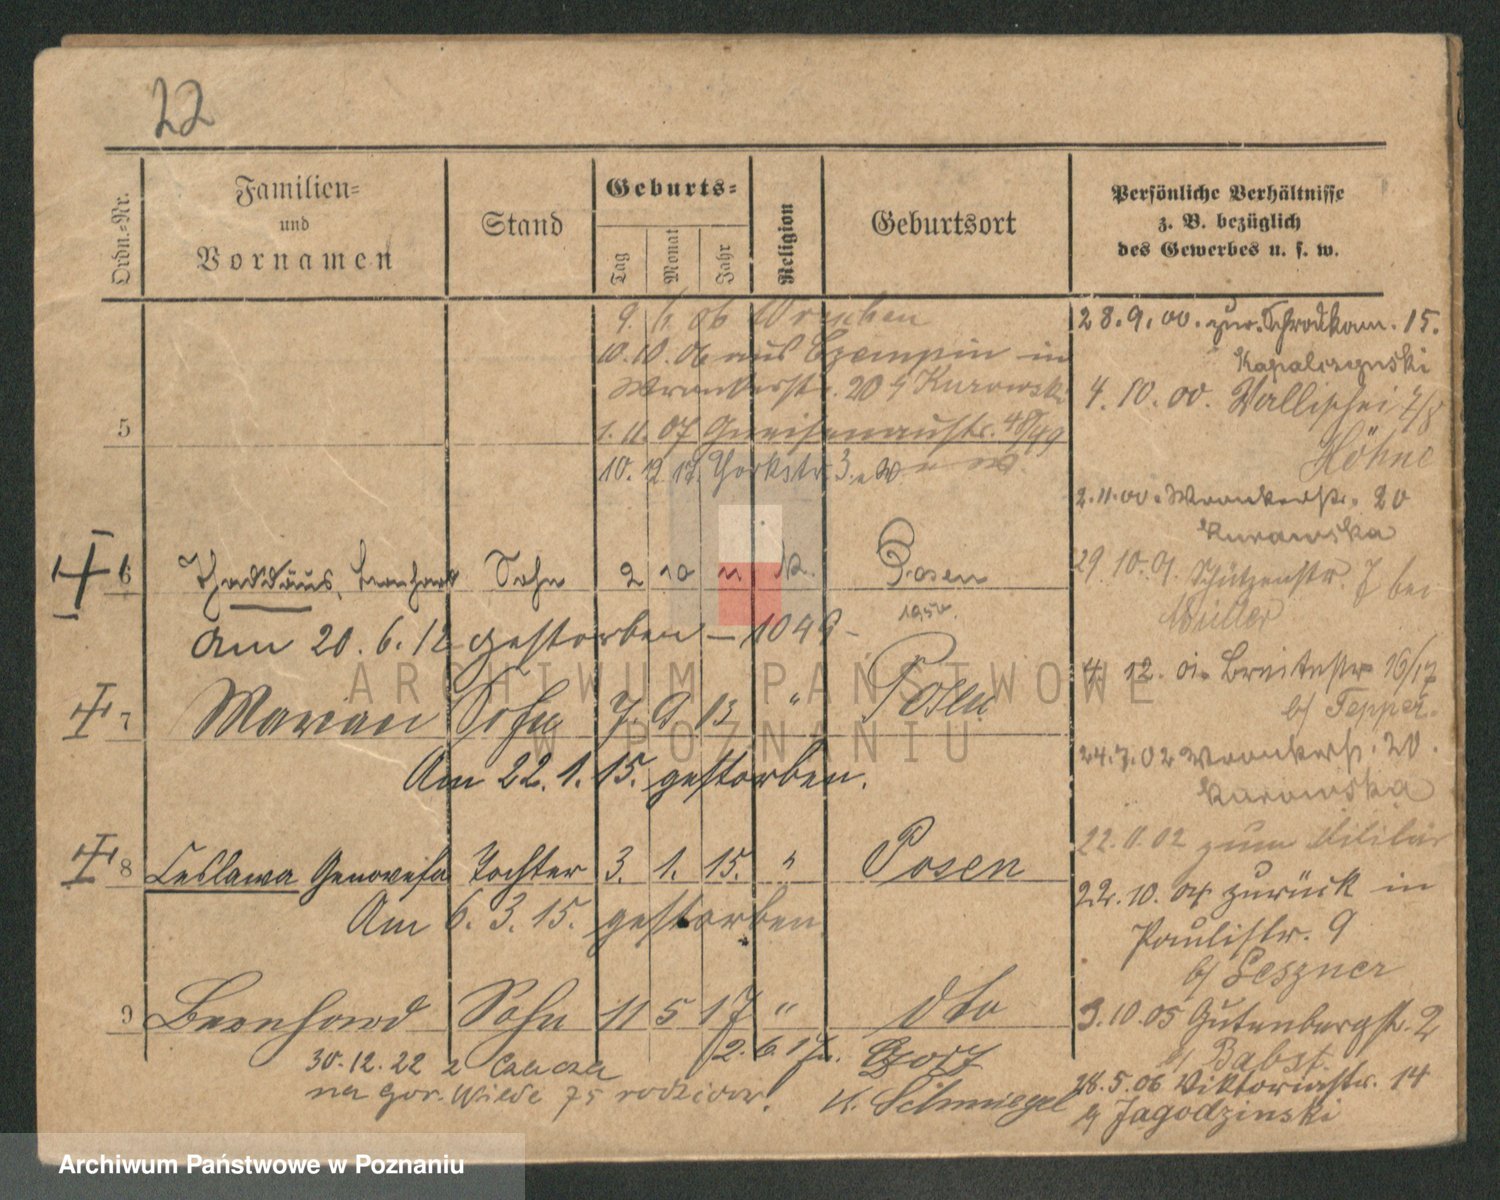 22
Ordn.-Nr.
Familien-
und
Vornamen
Stand
Geburts-
Tag
Monat
Jahr
Religion
Geburtsort
Persönliche Verhältnisse
z. B. bezüglich
des Gewerbes u. s. w.
9. 6. 06 Wreschen
10. 10. 06 aus Czempin in
Wronkerstr. 20 Kurowski
5
1. 11. 07 Gneisenaustr. 48/49
10. 12. 17. Yorkstr. 3.
6 Thaddäus, Leonhard Sohn 2 10 11 k. Posen
Am 20. 6. 12 gestorben – 1049 –
7 Marian Sohn 7. 9. 13 " Posen
Am 22. 1. 15. gestorben.
8 Ceslawa Genovefa Tochter 3. 1. 15. " Posen
Am 6. 3. 15. gestorben
9 Bernhard Sohn 11 5 17 " dto
2. 6. 17.
30.12.22 z Czacza
na gór. Wilde 75 rodziców.
K. Schmiegel
28. 9. 00. zur. Schrodkam. 15.
Kapalczynski
4. 10. 00. Wallischei
Höhne
2. 11. 00. Wronkerstr. 20
Kurowska
29 10. 01 Schützenstr. 7 bei
Müller
4. 12. 01. Breitestr 16/17
b/ Tepper.
24. 7. 02 Wronkerstr. 20.
Kurowska
22. 11. 02 zum Militär
22. 10. 04 zurück in
Paulistr. 9
b/ Leszner
3. 10. 05 Gutenbergstr. 2
Babst.
28. 5. 06 Viktoriastr. 14
b/ Jagodzinski
ARCHIWUM PAŃSTWOWE
W POZNANIU
Archiwum Państwowe w Poznaniu